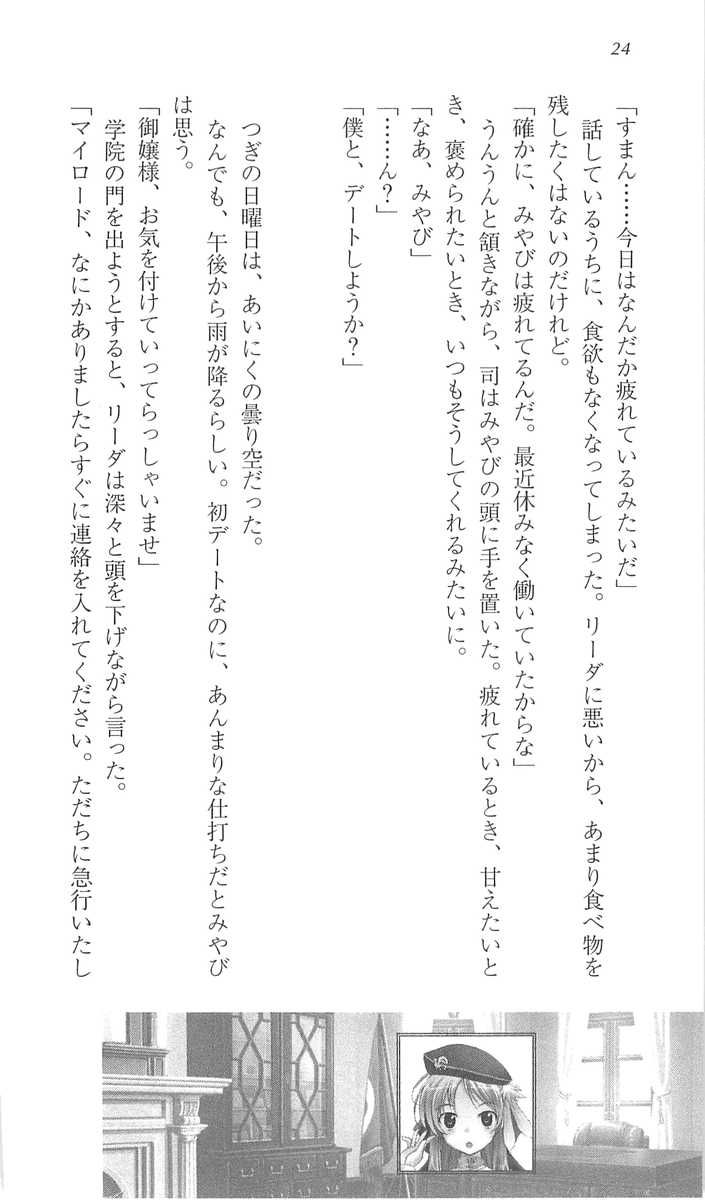 24
「すまん……今日はなんだか疲れているみたいだ」
話しているうちに、食欲もなくなってしまった。リーダに悪いから、あまり食べ物を
残したくはないのだけれど。
「確かに、みやびは疲れてるんだ。最近休みなく働いていたからな」
うんうんと頷きながら、司はみやびの頭に手を置いた。疲れているとき、甘えたいと
き、褒められたいとき、いつもそうしてくれるみたいに。
「なあ、みやび」
「……ん？」
「僕と、デートしようか？」
つぎの日曜日は、あいにくの曇り空だった。
なんでも、午後から雨が降るらしい。初デートなのに、あんまりな仕打ちだとみやび
は思う。
「御嬢様、お気を付けていってらっしゃいませ」
学院の門を出ようとすると、リーダは深々と頭を下げながら言った。
「マイロード、なにかありましたらすぐに連絡を入れてください。ただちに急行いたし